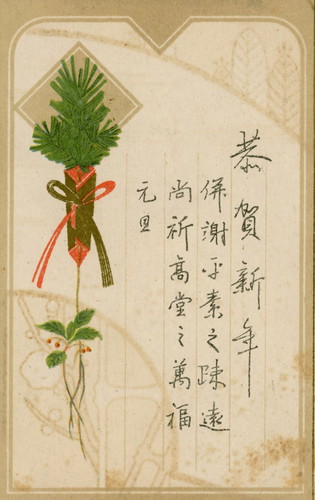 恭賀新年
併謝平素之疎遠
尚祈高堂之萬福
元旦